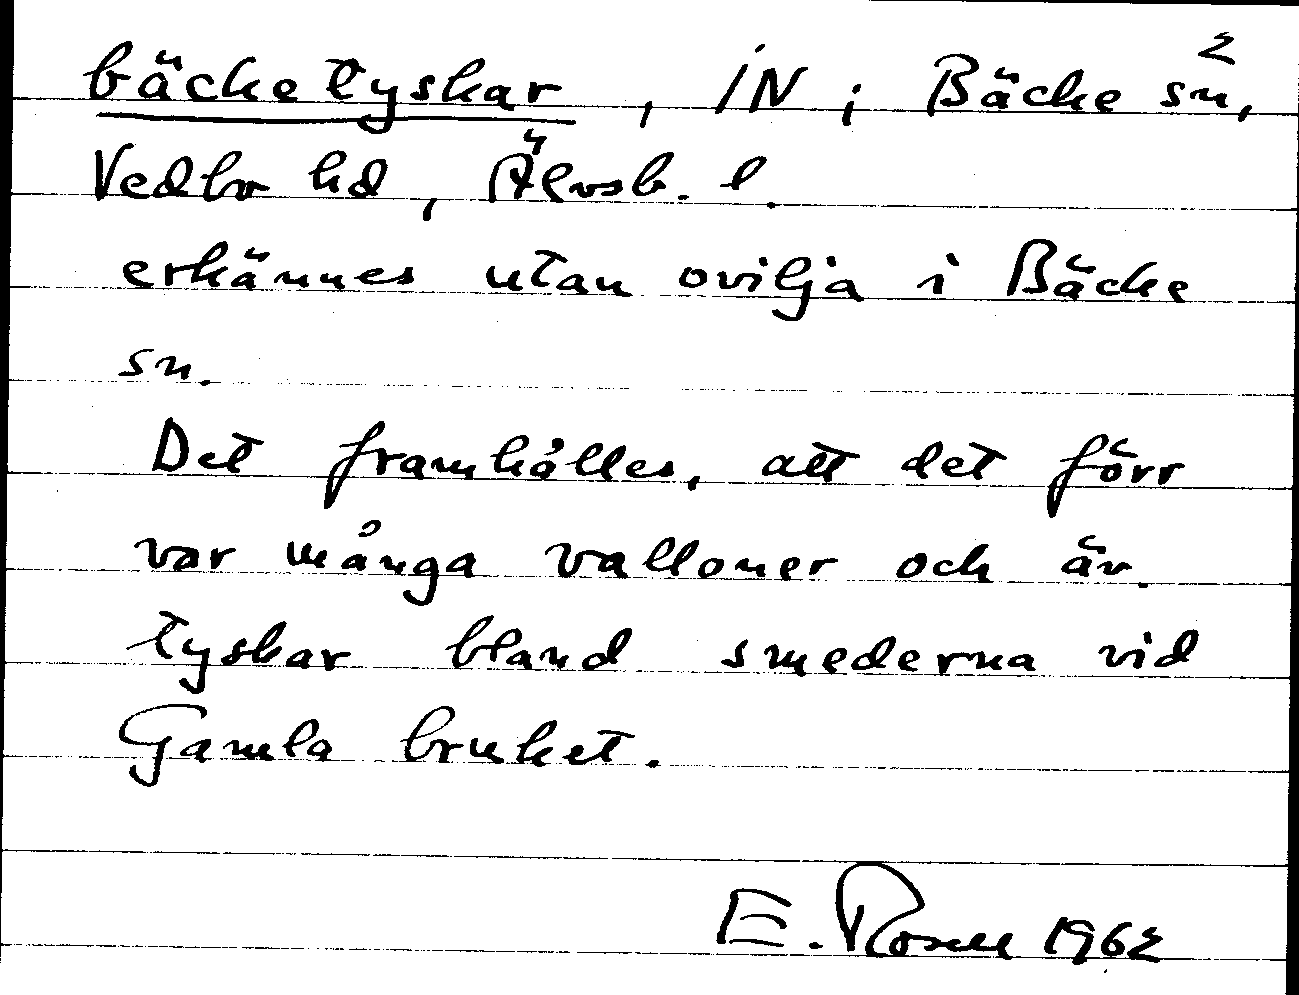 2
bäcketyskar, IN i Bäcke sn,
Vedbo hd, Älvsb. l.
erkännes utan ovilja i Bäcke
sn.
Det framhålles, att det förr
var många valloner och äv.
tyskar bland smederna vid
Gamla bruket.
E. Rosell 1962